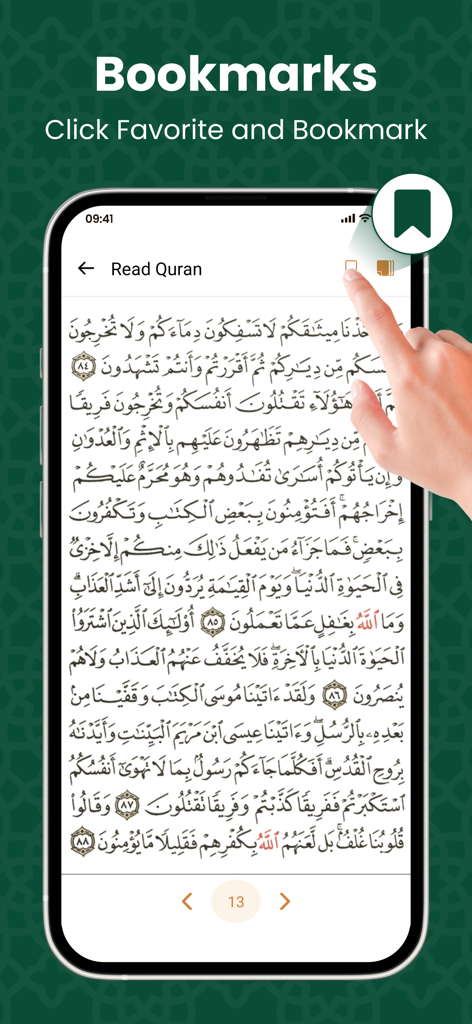 Bookmarks
Click Favorite and Bookmark
09:41
Read Quran
أَخَذْنَا مِيثَـٰقَكُمْ لَا تَسْفِكُونَ دِمَآءَكُمْ وَلَا تُخْرِجُونَ
مِّن دِيَـٰرِكُمْ ثُمَّ أَقْرَرْتُمْ وَأَنتُمْ تَشْهَدُونَ ٨٤
هَـٰٓؤُلَآءِ تَقْتُلُونَ أَنفُسَكُمْ وَتُخْرِجُونَ فَرِيقًا
مِّن دِيَـٰرِهِمْ تَظَـٰهَرُونَ عَلَيْهِم بِٱلْإِثْمِ وَٱلْعُدْوَٰنِ
وَإِن يَأْتُوكُمْ أُسَـٰرَىٰ تُفَـٰدُوهُمْ وَهُوَ مُحَرَّمٌ عَلَيْكُمْ
إِخْرَاجُهُمْ ۚ أَفَتُؤْمِنُونَ بِبَعْضِ ٱلْكِتَـٰبِ وَتَكْفُرُونَ
بِبَعْضٍ ۚ فَمَا جَزَآءُ مَن يَفْعَلُ ذَٰلِكَ مِنكُمْ إِلَّا خِزْىٌ
فِى ٱلْحَيَوٰةِ ٱلدُّنْيَا ۖ وَيَوْمَ ٱلْقِيَـٰمَةِ يُرَدُّونَ إِلَىٰٓ أَشَدِّ ٱلْعَذَابِ ۗ
وَمَا ٱللَّهُ بِغَـٰفِلٍ عَمَّا تَعْمَلُونَ ٨٥ أُو۟لَـٰٓئِكَ ٱلَّذِينَ ٱشْتَرَوُا۟
ٱلْحَيَوٰةَ ٱلدُّنْيَا بِٱلْـَٔاخِرَةِ ۖ فَلَا يُخَفَّفُ عَنْهُمُ ٱلْعَذَابُ وَلَا هُمْ
يُنصَرُونَ ٨٦ وَلَقَدْ ءَاتَيْنَا مُوسَى ٱلْكِتَـٰبَ وَقَفَّيْنَا مِنۢ
بَعْدِهِۦ بِٱلرُّسُلِ ۖ وَءَاتَيْنَا عِيسَى ٱبْنَ مَرْيَمَ ٱلْبَيِّنَـٰتِ وَأَيَّدْنَـٰهُ
بِرُوحِ ٱلْقُدُسِ ۗ أَفَكُلَّمَا جَآءَكُمْ رَسُولٌۢ بِمَا لَا تَهْوَىٰٓ أَنفُسُكُمُ
ٱسْتَكْبَرْتُمْ فَفَرِيقًا كَذَّبْتُمْ وَفَرِيقًا تَقْتُلُونَ ٨٧ وَقَالُوا۟
قُلُوبُنَا غُلْفٌۢ ۚ بَل لَّعَنَهُمُ ٱللَّهُ بِكُفْرِهِمْ فَقَلِيلًا مَّا يُؤْمِنُونَ ٨٨
13